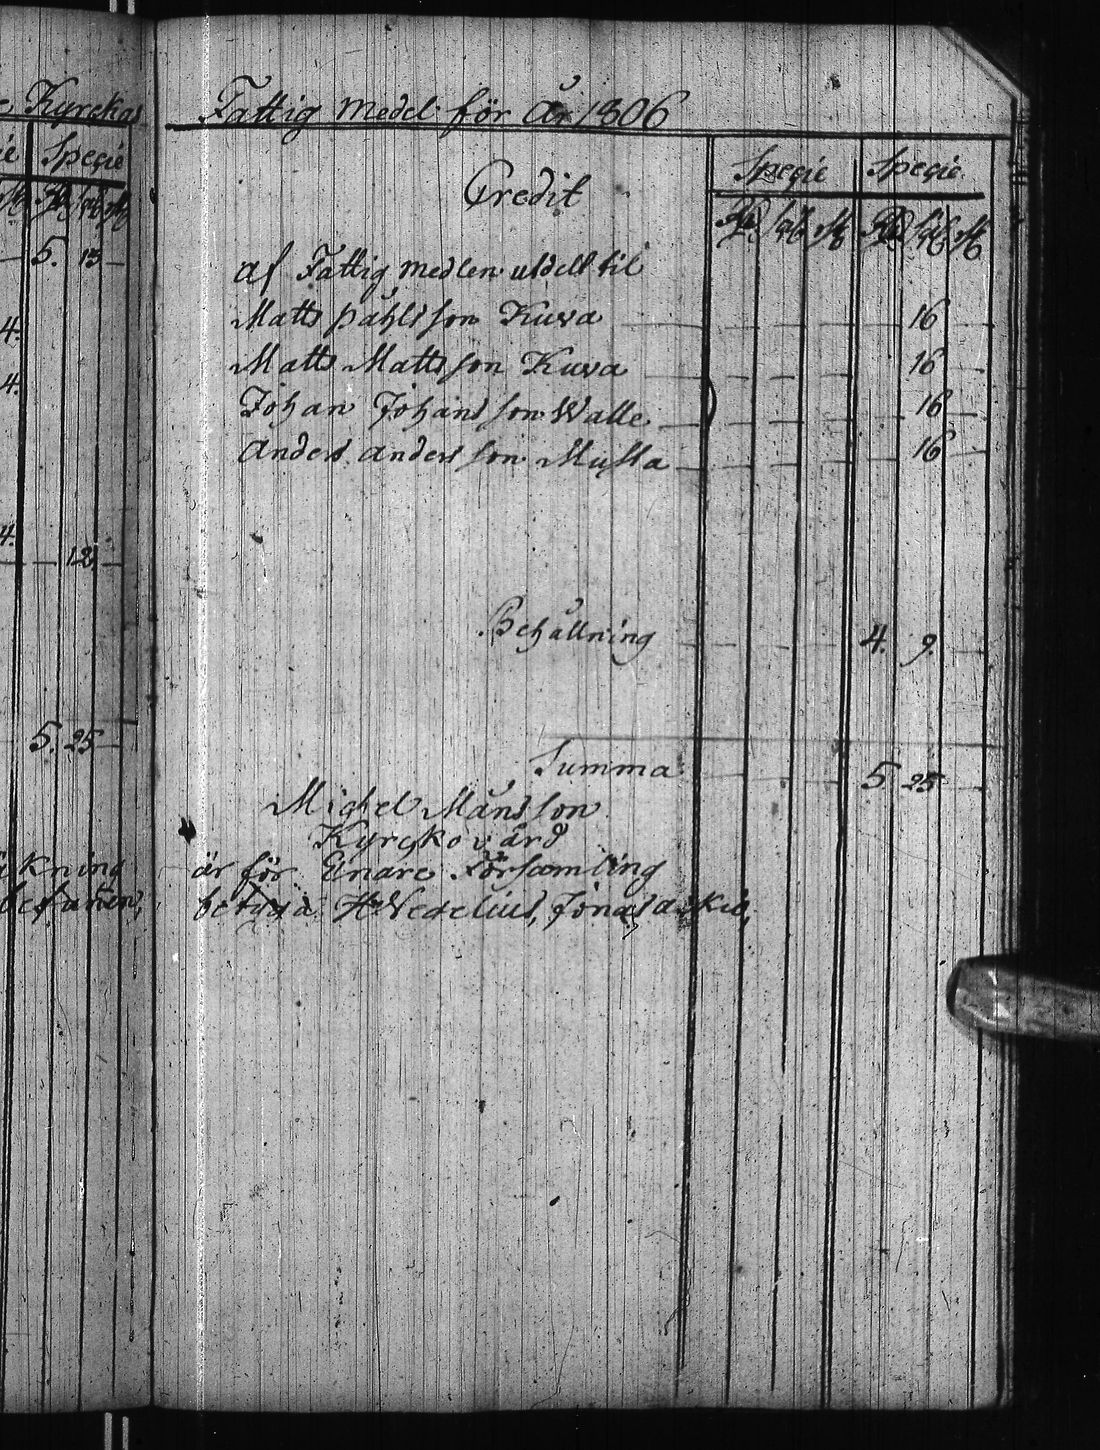 Kyrckas
Specie
5. 13 —
4.
4.
4.
12 —
5. 25 —
äkning
befunen,
Fattig medel för År 1806
Credit
Specie Specie
Rd sk rst Rd sk rst
af Fattig medlen utdelt til
Matts påhls son Kuva — — — — 16 —
Matts Matts son Kuva — — — — 16 —
Johan Johans son Walle — — — — 16 —
Anders anders son Musta — — — — 16 —
Behållning — — — 4. 9. —
Summa — — — 5 25 —
Michel Måns son
Kyrcko vård
är för Enare Församling
betyga H Wegelius, Jonas aikio,